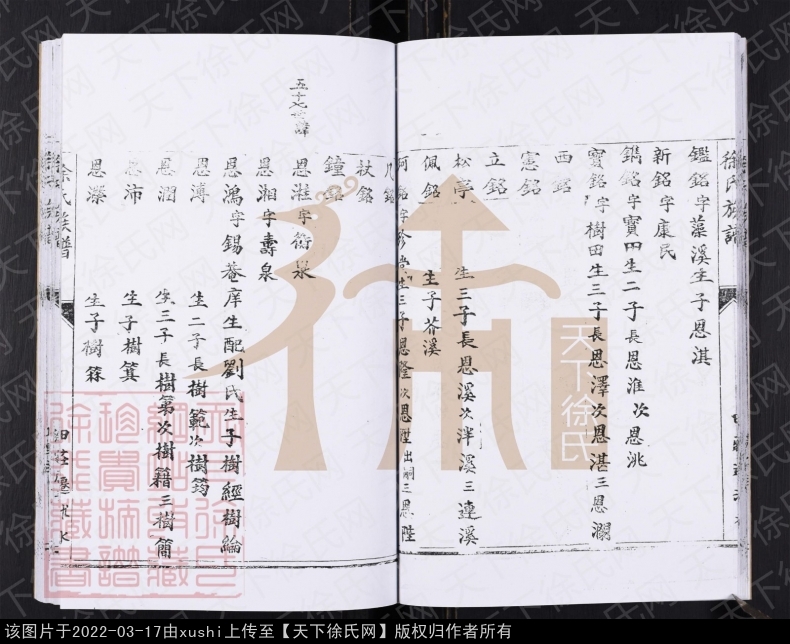 徐氏族譜
鑑銘字藻溪生子恩淇
新銘字康民
鐫銘字寶田生二子長恩淮次恩洮
寶銘字樹田生三子長恩澤次恩湛三恩瀾
西銘
憲銘
立銘
松亭 生三子長恩溪次泮溪三連溪
佩銘 生子芥溪
生三子恩隆次恩陞出嗣三恩陛
杖銘
鐘銘
五十七世諱
恩澍字衍泉
恩湘字壽泉
恩鴻字錫菴庠生配劉氏生子樹經樹綸
恩溥 生二子長樹範次樹筠
恩潤 生三子長樹第次樹籍三樹簡
恩沛 生子樹箕
恩濼 生子樹霖
徐氏族譜
天下徐氏
天下徐氏网
该图片于2022-03-17由xushi上传至【天下徐氏网】版权归作者所有